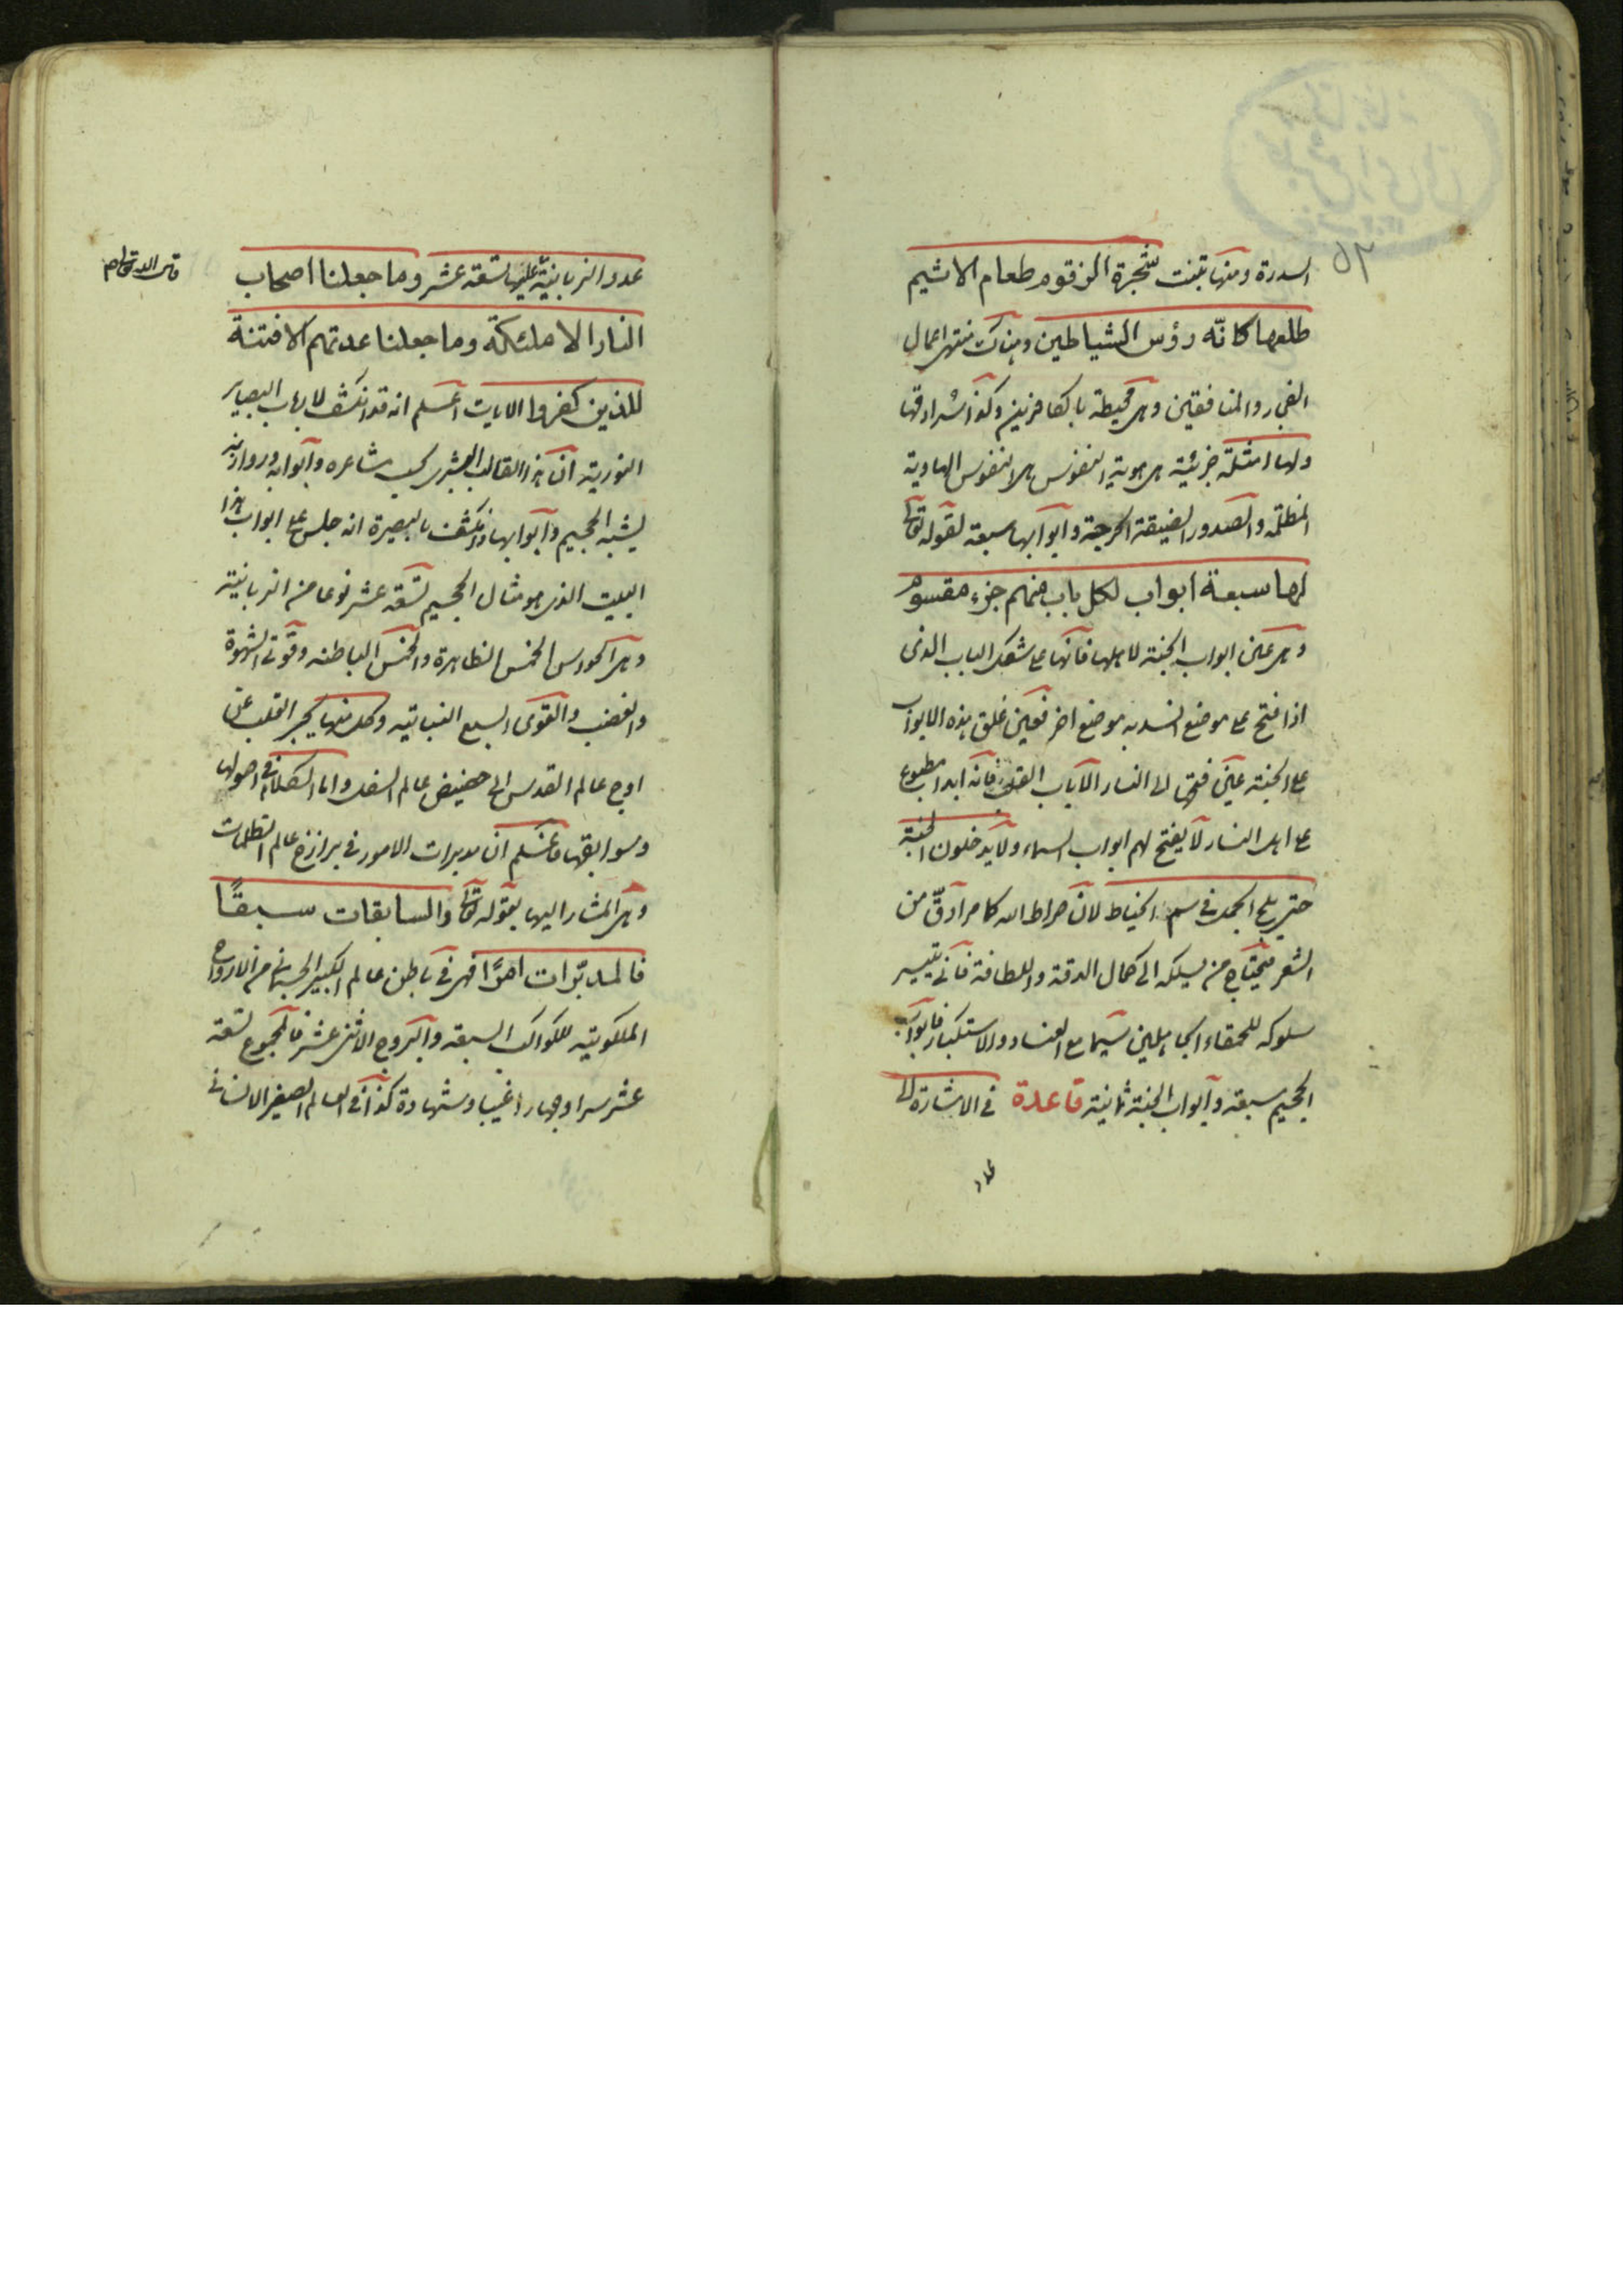 السدرة ومنها تنبت شجرة الزقوم طعام الاثيم
طلعها كانّه رؤس الشياطين وهناك منتهى اعمال
الفجار والمنافقين وهى محيطة بالكافرين وكذا سرادقها
ولها امثلة جزئية هى هوية النفوس هى النفوس الهاوية
المظلمة والصدور الضيقة الحرجة وابوابها سبعة لقوله تعالى
لها سبعة ابواب لكل باب منهم جزء مقسوم
وهى عين ابواب الجنة لاهلها فانها على شكل الباب الذى
اذا فتح على موضع انسد به موضع اخر فعين غلق هذه الابواب
على الجنة عين فتحها الى النار الا باب القلب فانه ابدا مطبوع
على اهل النار لا يفتح لهم ابواب السماء ولا يدخلون الجنة
حتى يلج الجمل فى سم الخياط لان صراط الله كما مر ادقّ من
الشعر فيحتاج من يسلكه الى كمال الدقة واللطافة فانى تيسير
سلوكه للحمقاء الجاهلين سيما مع العناد والاستكبار فابواب
الجحيم سبعة وابواب الجنة ثمانية قاعدة فى الاشارة الى
عدد
عدد الزبانية عليها تسعة عشر وما جعلنا اصحاب
قال الله تعالى
النار الا ملئكة وما جعلنا عدتهم الا فتنة
للذين كفروا الايات اعلم انه قد انكشف لارباب البصاير
النورية ان هذا القالب البشرى بحسب مشاعره وابوابه وروازنه
يشبه الجحيم وابوابها وانكشف بالبصيرة انه جلس على ابواب هذا
البيت الذى هو مثال الجحيم تسعة عشر نوعا من الزبانية
وهى الحواس الخمس الظاهرة والخمس الباطنه وقوتى الشهوة
والغضب والقوى السبع النباتيه وكل منها يجر القلب عن
اوج عالم القدس الى حضيض عالم السفل واما الكلام فى اصولها
وسوابقها فاعلم ان مدبرات الامور فى برازخ عالم الظلمات
وهى المشار اليها بقوله تعالى والسابقات سبقًا
فالمدبّرات امرًا فهى فى باطن عالم الكبير الجسمانى من الارواح
الملكوتيه للكواكب السبعه والبروج الاثنى عشر فالمجموع تسعة
عشر سرا وجهارا غيبا وشهادة كذا فى العالم الصغير الانسانى